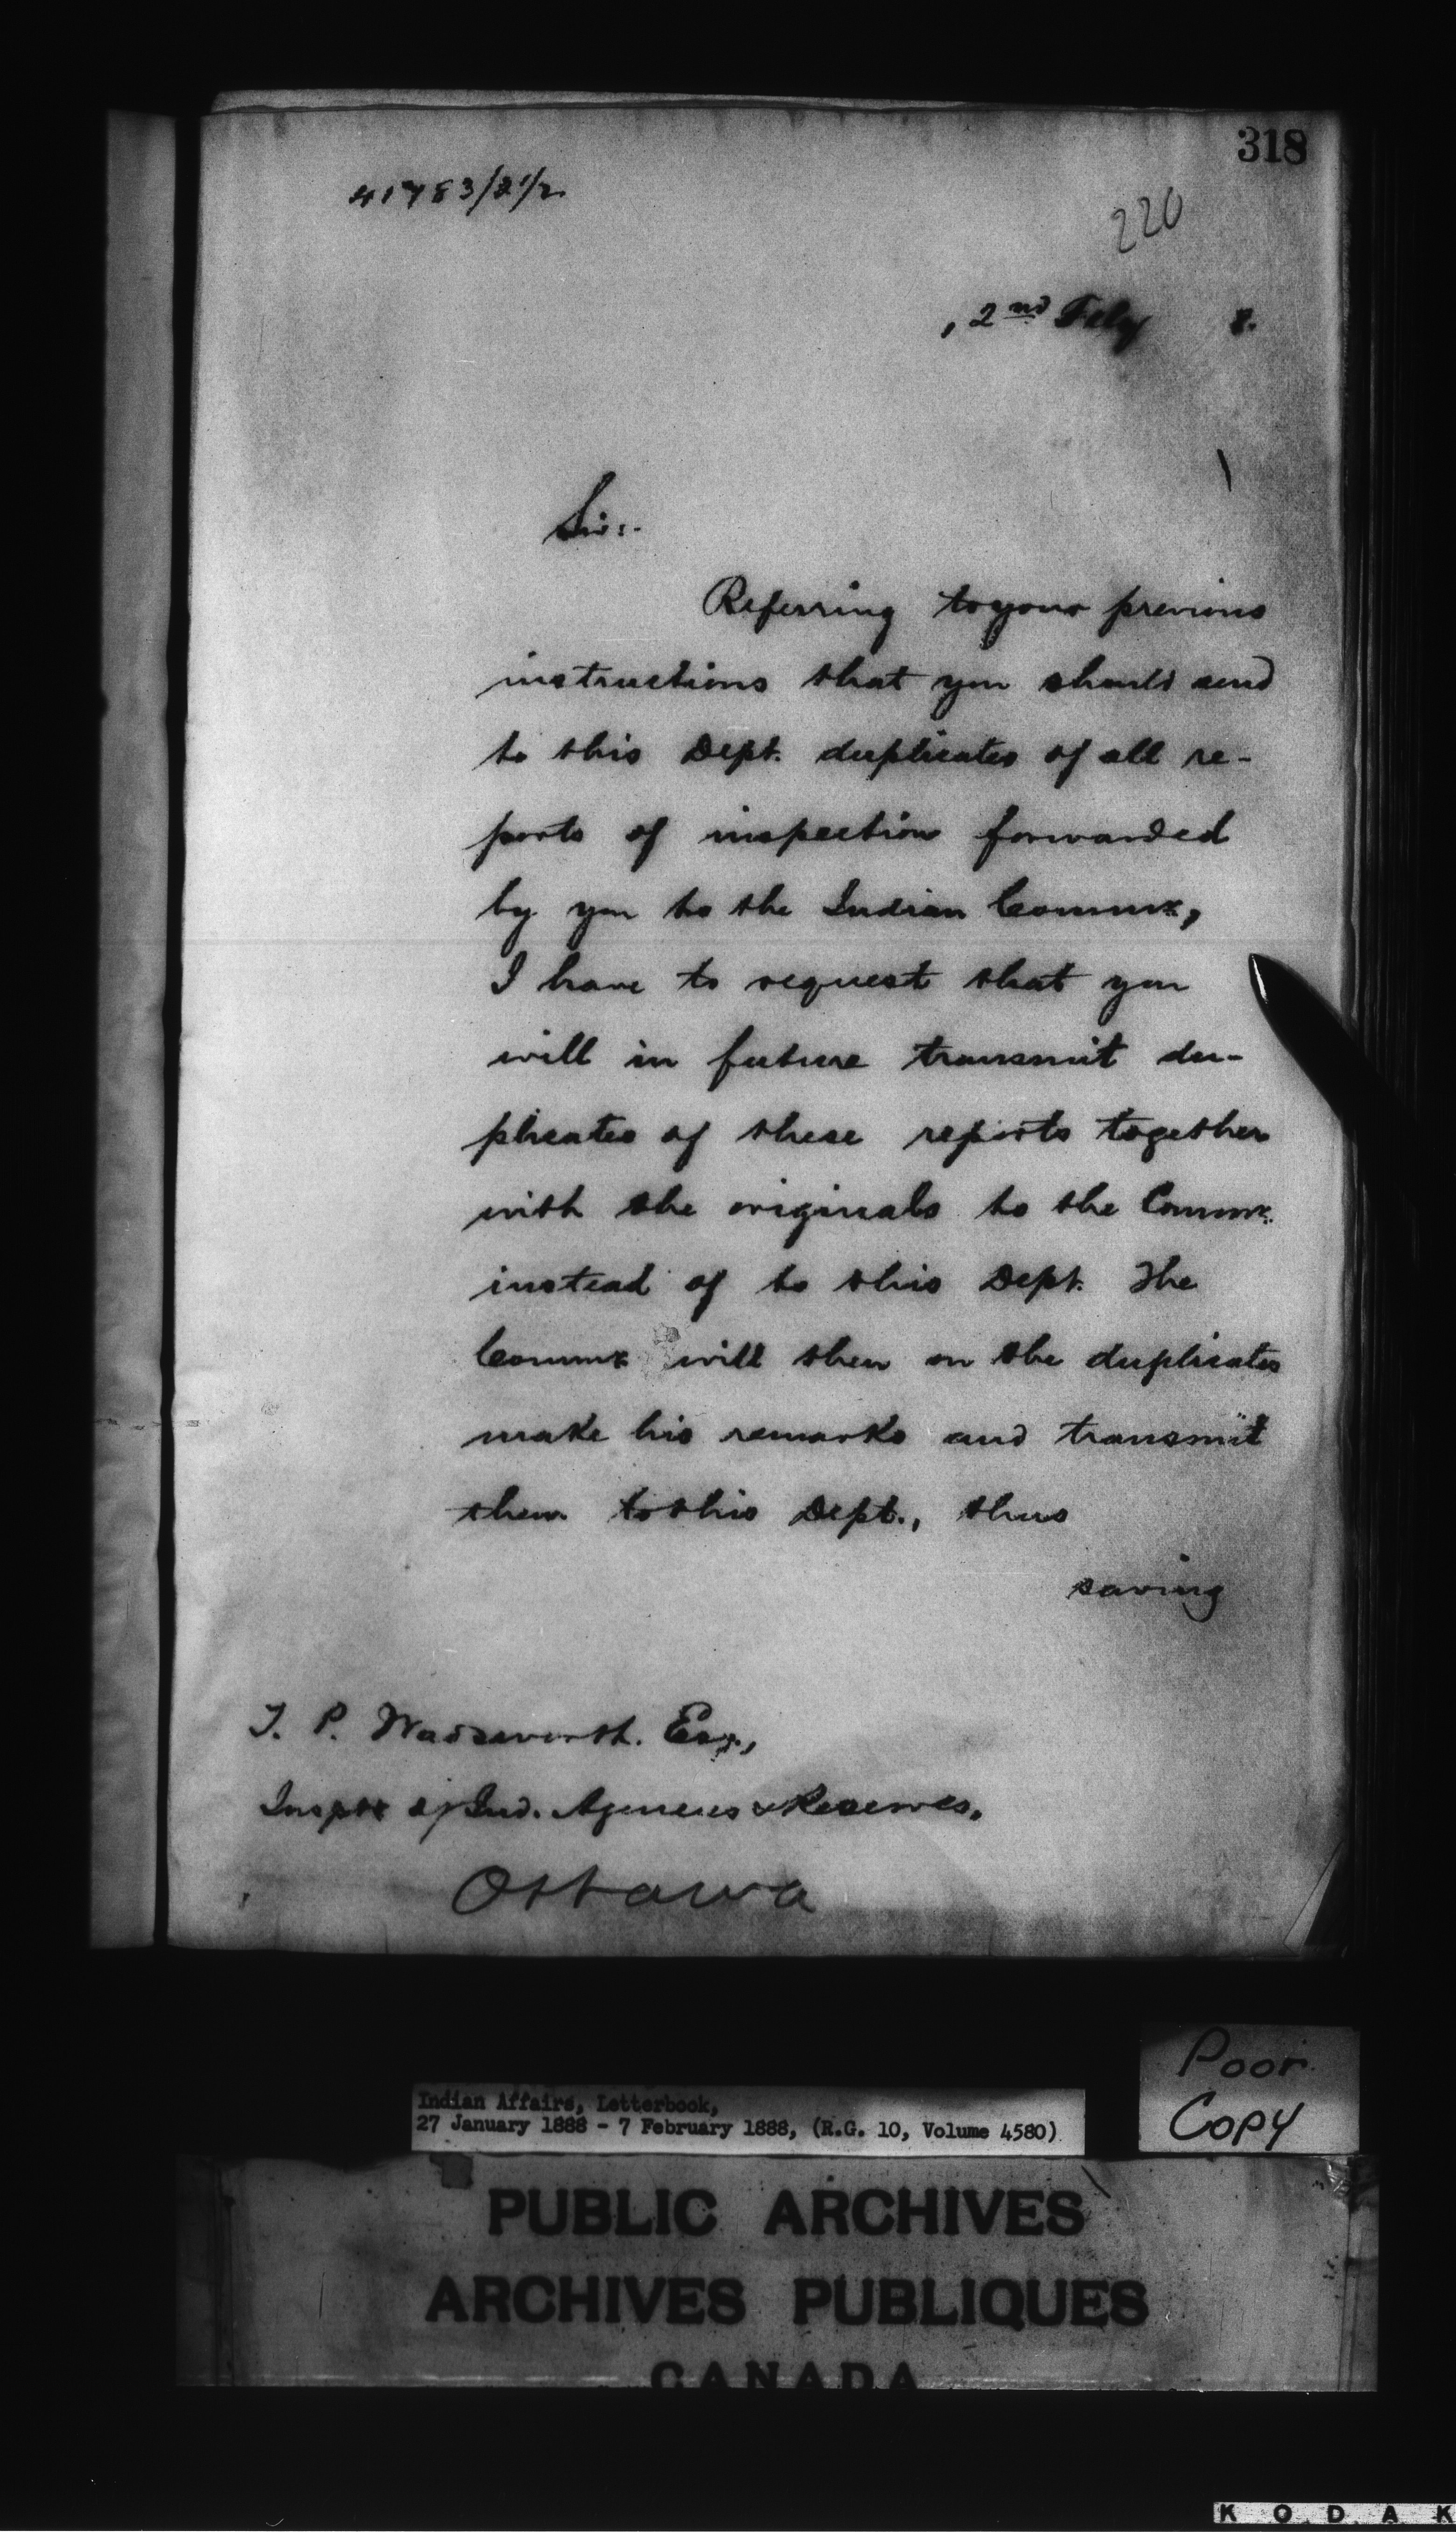 318
41783/2 1/2
220
, 2nd Feby 8.
Sir:-
Referring to your previous
instructions that you should send
to this Dept. duplicates of all re-
ports of inspection forwarded
by you to the Indian Commr,
I have to request that you
will in future transmit du-
plicates of these reports together
with the originals to the Commr.
instead of to this Dept. The
Commr will then on the duplicates
make his remarks and transmit
them to this Dept., thus
saving
T. P. Wadsworth. Esq.,
Inspr of Ind. Agencies & Reserves.
Ottawa
Poor
Copy
Indian Affairs, Letterbook,
27 January 1888 - 7 February 1888, (R.G. 10, Volume 4580)
PUBLIC ARCHIVES
ARCHIVES PUBLIQUES
CANADA
KODAK